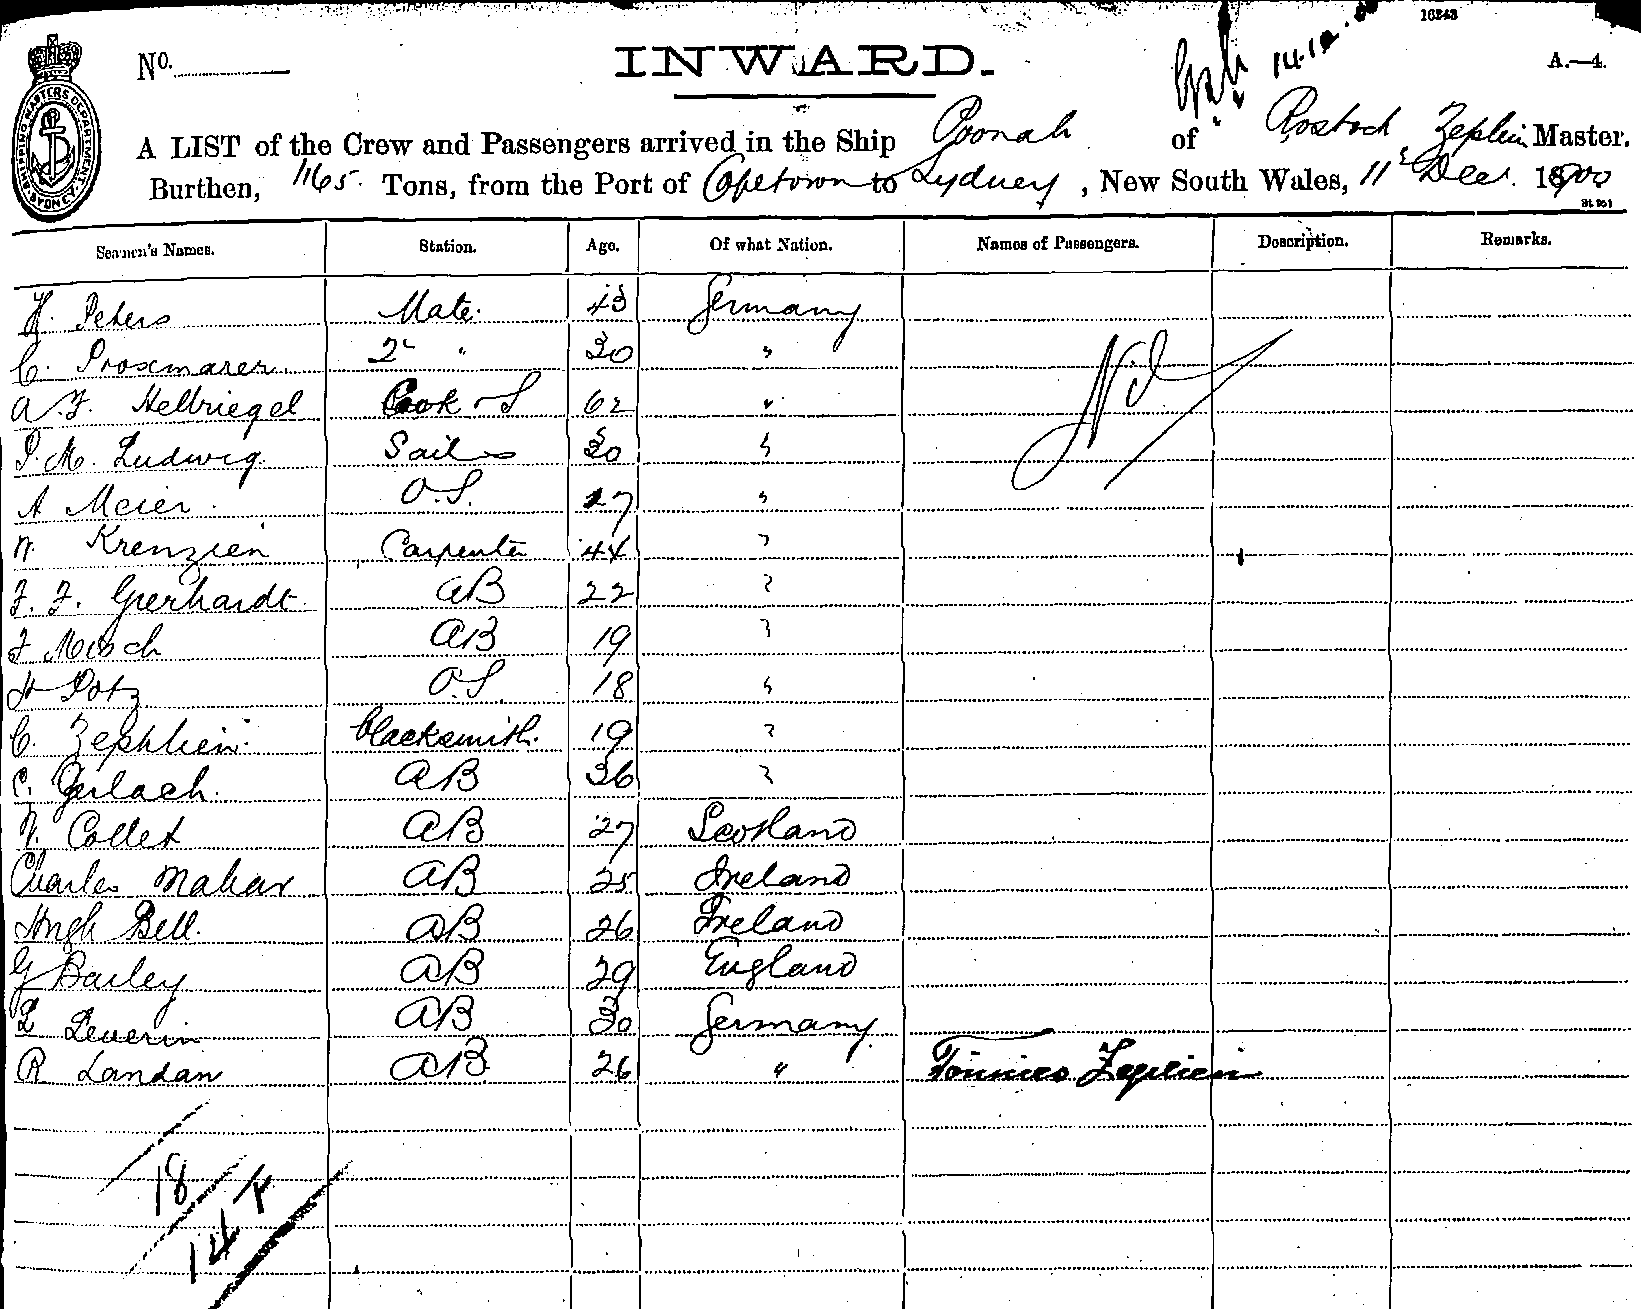 16243
No.
INWARD.
14.12.
A.—4.
SHIPPING MASTERS DEPARTMENT. SYDNEY.
A LIST of the Crew and Passengers arrived in the Ship Poonah of Rostock Zeplin Master.
Burthen, 1165. Tons, from the Port of Capetown to Sydney, New South Wales, 11 Dec. 1900
Seamen's Names. Station. Age. Of what Nation. Names of Passengers. Description. Remarks.
H. Peters Mate. 43 Germany
C. Proxmarer 2 " 30 " Nil
A. F. Helbriegel Cook & S 62 "
P. M. Ludwig. 30 "
A Meier O.S. 27 "
W. Krenzien Carpenter 44 "
F. F. Gerhardt. AB 22 "
F Misch AB 19 "
H Potz O.S. 18 "
C. Zephlien. blacksmith. 19 "
C. Gerlach. AB 36 "
Collet AB 27 Scotland
Charles Mahar AB 25 Ireland
Hugh Bell. AB 26 Ireland
G Bailey AB 29 England
L Leverin AB 30 Germany
R Landan AB 26 " Tönnies Zeplien
18
14 F